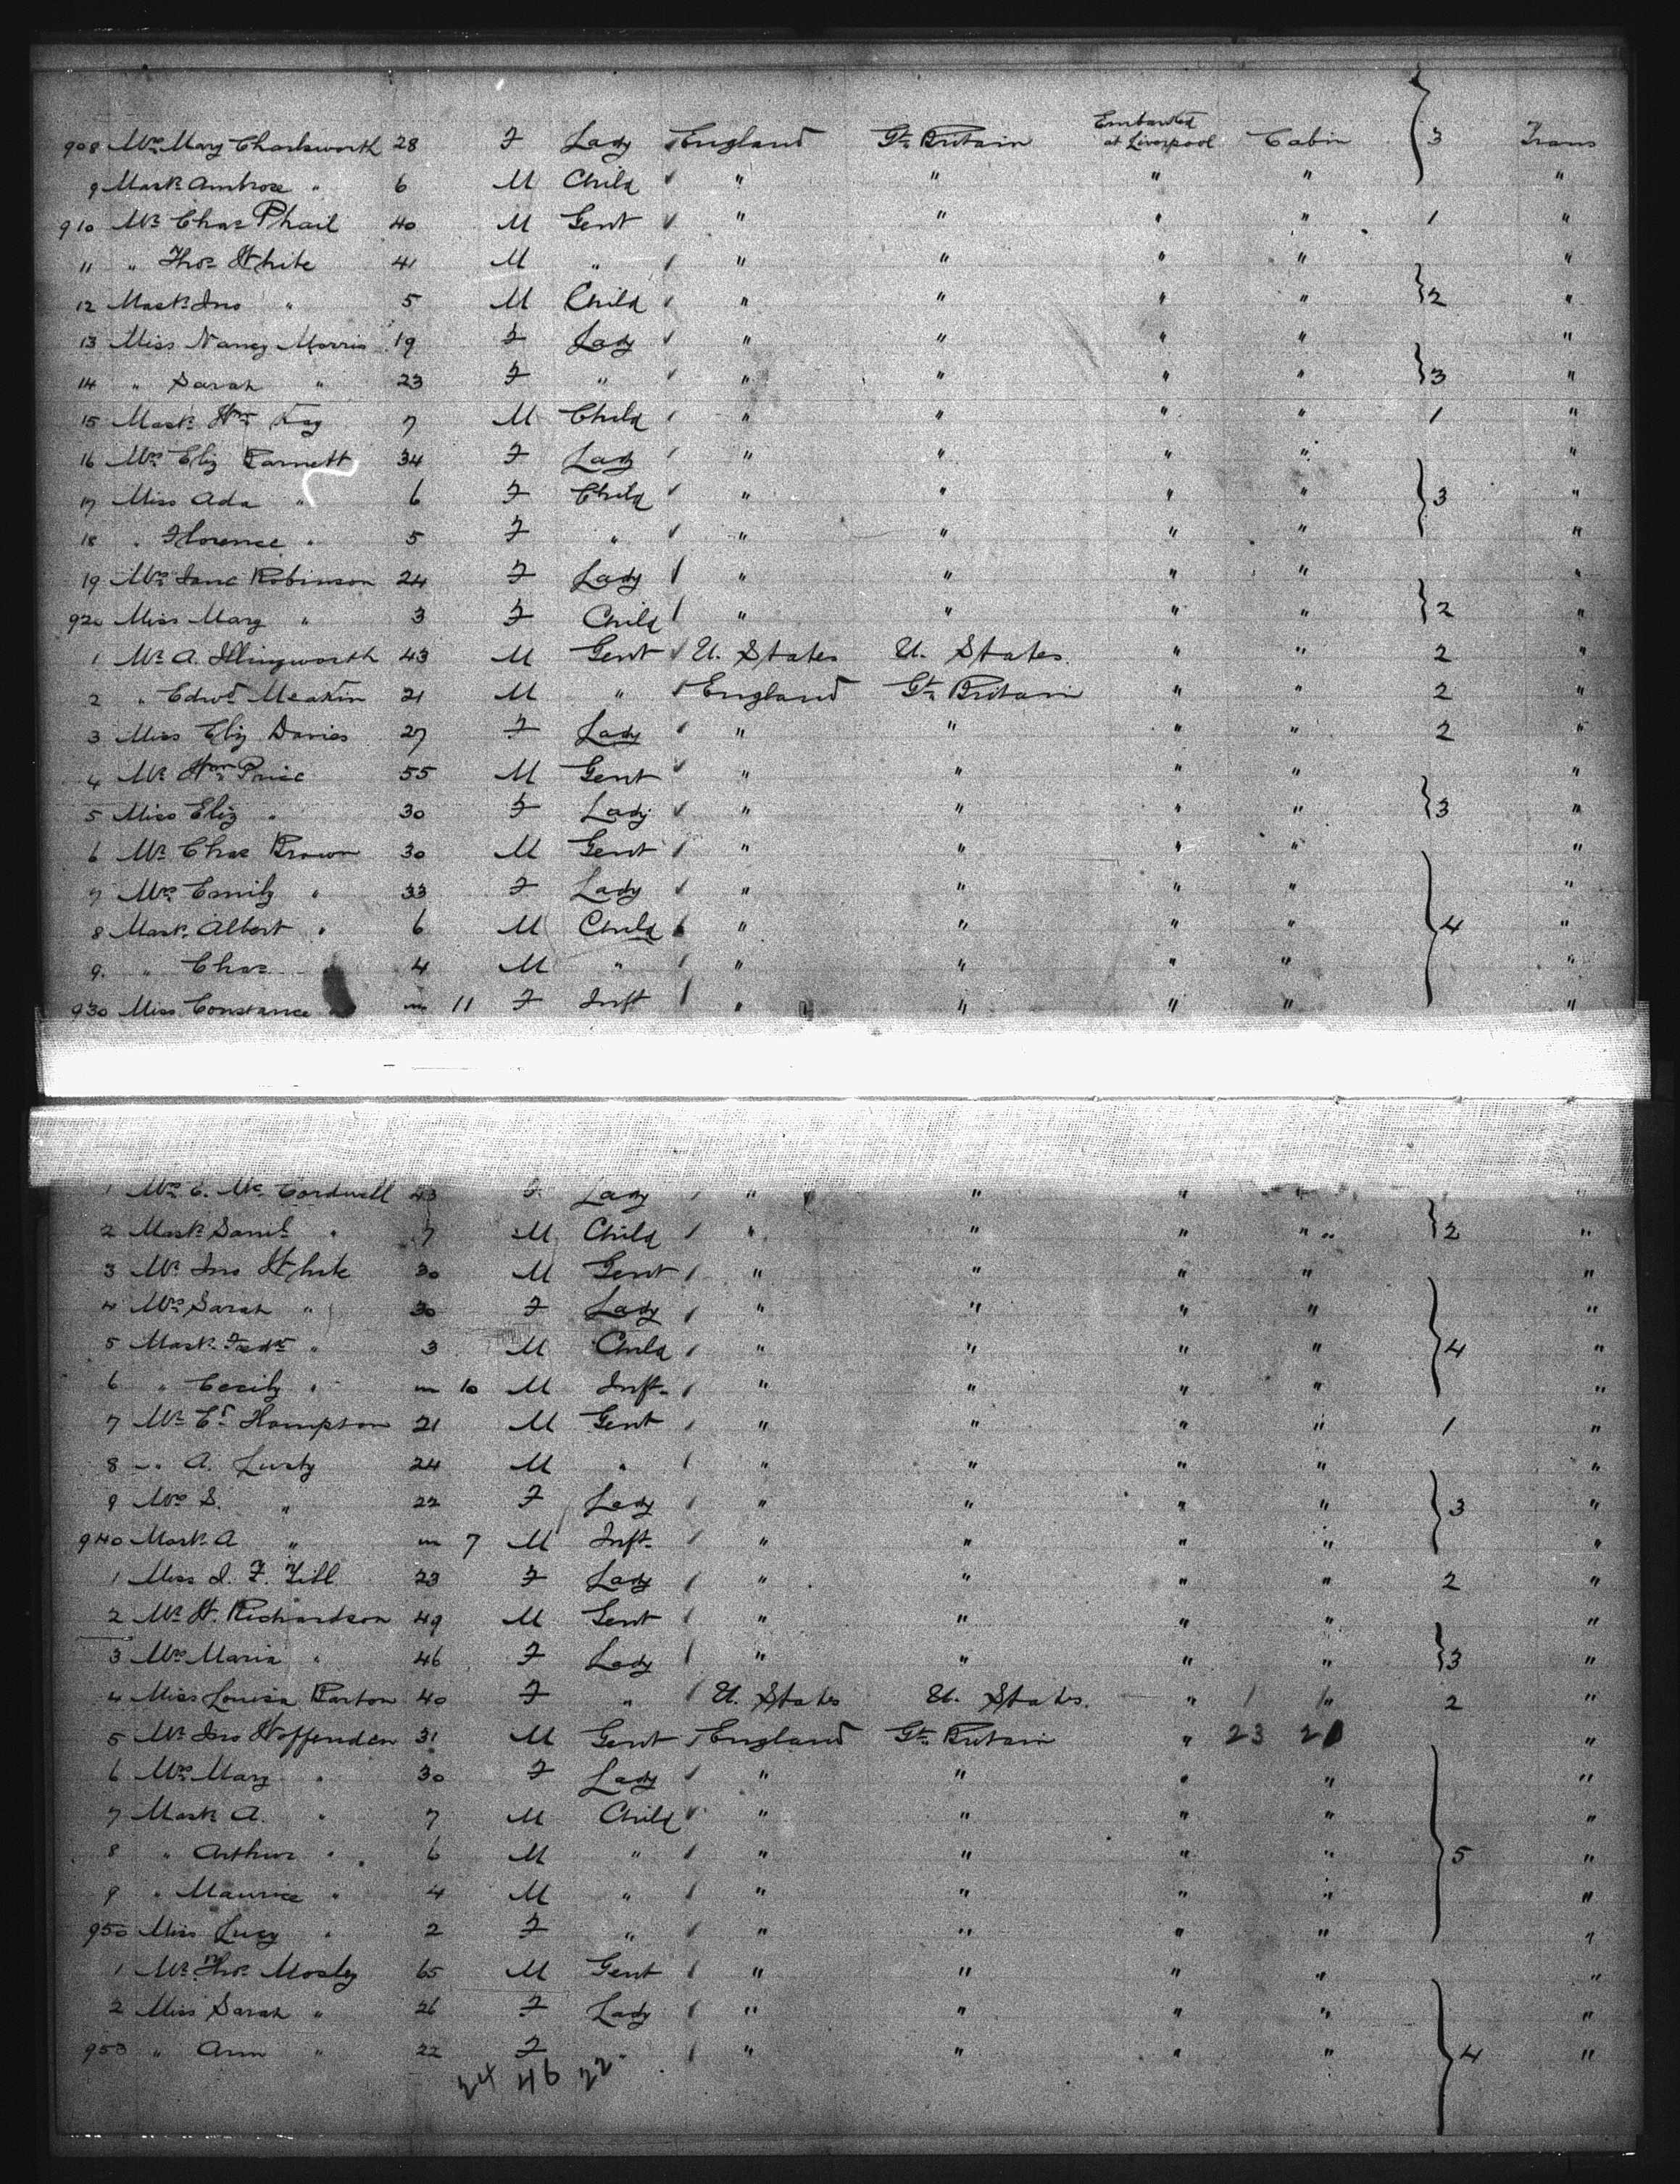 908 Mrs Mary Charlsworth 28 F Lady England Gt. Britain Embarked at Liverpool Cabin 3 Trans
9 Mast. Ambrose " 6 M Child " " " " "
910 Mr Chas Phail 40 M Gent " " " " 1 "
11 " Thos White 41 M " " " " " "
12 Mast. Jno " 5 M Child " " " " 2 "
13 Miss Nancy Morris 19 F Lady " " " " "
14 " Sarah " 23 F " " " " " 3 "
15 Mast. Wm Kay 7 M Child " " " " 1 "
16 Mrs Eliz Barnett 34 F Lady " " " " "
17 Miss Ada " 6 F Child " " " " 3 "
18 " Florence " 5 F " " " " " "
19 Mrs Jane Robinson 24 F Lady " " " " "
920 Miss Mary " 3 F Child " " " " 2 "
1 Mr A. Illingworth 43 M Gent U. States U. States " " 2 "
2 " Edwd Meakin 21 M " England Gt. Britain " " 2 "
3 Miss Eliz Davies 27 F Lady " " " " 2 "
4 Mr Wm Price 55 M Gent " " " " "
5 Miss Eliz " 30 F Lady " " " " 3 "
6 Mr Chas Brown 30 M Gent " " " " "
7 Mrs Emily " 33 F Lady " " " " "
8 Mast. Albert " 6 M Child " " " " 4 "
9 " Chas 4 M " " " " " "
930 Miss Constance m 11 F Inft " " " " "
1 Mrs E. Mc Cordwell 43 Lady " " " " "
2 Mast. Saml " 7 M Child " " " " 2 "
3 Mr Jno White 30 M Gent " " " " "
4 Mrs Sarah " 30 F Lady " " " " "
5 Mast. Fredk " 3 M Child " " " " 4 "
6 " Cecily " m 10 M Inft. " " " " "
7 Mr Ed Hampton 21 M Gent " " " " 1 "
8 " A. Lusty 24 M " " " " " "
9 Mrs S. " 22 F Lady " " " " 3 "
940 Mast. A " m 7 M Inft. " " " " "
1 Miss I. F. Tibl 23 F Lady " " " " 2 "
2 Mr W. Richardson 49 M Gent " " " " "
3 Mrs Maria " 46 F Lady " " " " 3 "
4 Miss Louisa Barton 40 F " U. States U. States. " " 2 "
5 Mr Jno Hoffenden 31 M Gent England Gt. Britain " 23 "
6 Mrs Mary " 30 F Lady " " " " "
7 Mast. A. " 7 M Child " " " " "
8 " Arthur " 6 M " " " " " 5 "
9 " Maurice " 4 M " " " " " "
950 Miss Lucy " 2 F " " " " " "
1 Mr Thos Mosley 65 M Gent " " " " "
2 Miss Sarah " 26 F Lady " " " " "
953 " Ann " 22 F " " " " " 4 "
24 46 22